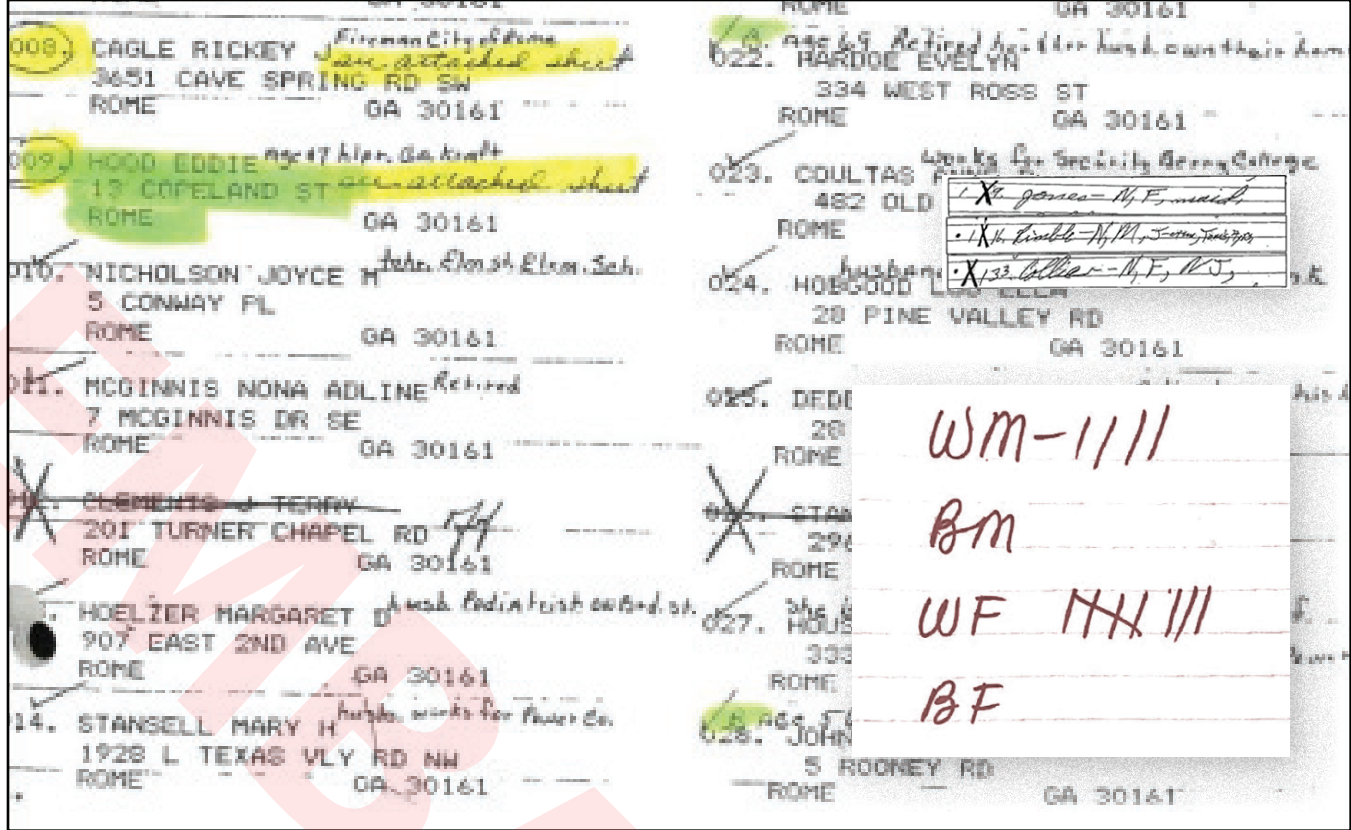 ROME GA 30161
008. CAGLE RICKEY J Fireman City of Rome
see attached sheet
3651 CAVE SPRING RD SW
ROME GA 30161
009. HOOD EDDIE Age 47 hlpr. Ga Kraft
13 COPELAND ST see attached sheet
ROME GA 30161
010. NICHOLSON JOYCE M tchr. Elm St. Elem. Sch.
5 CONWAY PL
ROME GA 30161
011. MCGINNIS NONA ADLINE Retired
7 MCGINNIS DR SE
ROME GA 30161
CLEMENTS J TERRY
201 TURNER CHAPEL RD
ROME GA 30161
HOELZER MARGARET D husb. Podiatrist on Brd. St.
907 EAST 2ND AVE
ROME GA 30161
14. STANSELL MARY H husb. works for Power Co.
1928 L TEXAS VLY RD NW
ROME GA 30161
ROME GA 30161
B Age 69 Retired her & her husb. own their hom
022. HARDGE EVELYN
334 WEST ROSS ST
ROME GA 30161
works for Security Berry College
023. COULTAS
482 OLD
ROME
1 X 9. Jones - N, F, maid,
1 X 16. - N, M,
X 133. Collier - N, F, NJ,
024. HOBGOOD LOU ELLA
28 PINE VALLEY RD
ROME GA 30161
025. DEDE
28
ROME
his
STAN
296
ROME
027. HOUS
333
ROME
B Age
028. JOHN
5 ROONEY RD
ROME GA 30161
WM - 1111
BM
WF
BF